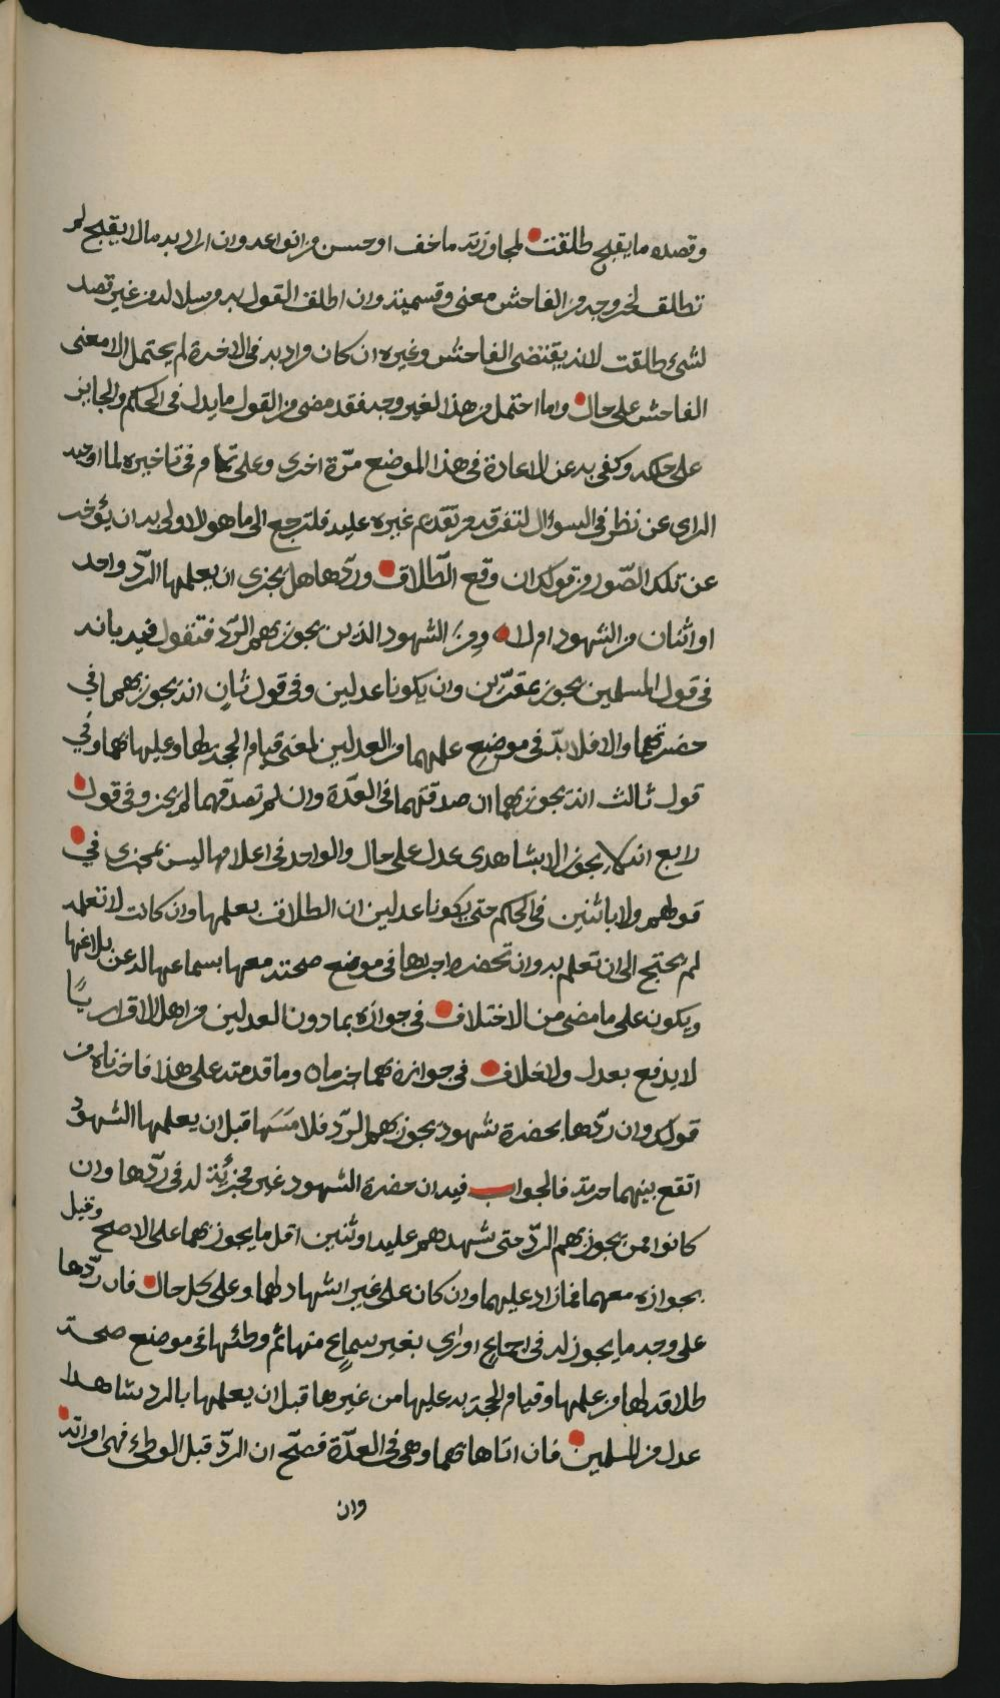 وقصده ما يقبح طلقت لمجاوزته ما خف او حسن من انواعه وان اراد به مالا يقبح لم
تطلق لخروجه من الفاحش معنى وقسميته وان اطلق القول به مرسلا له من غير قصد
لشيء طلقت لانه يقتضى الفاحش وغيره ان كان مراد به في الاخرة لم يحتمل الا معنى
الفاحش على حال واما احتمل من هذا لغير وجه فقد مضى من القول ما يدل في الحكم والجائز
على حكمه وكفى به عن الاعادة في هذا الموضع مرّة اخرى وعلى تمام في تاخيره لما اوجبه
الراى عن نظر في السوال لتفرقه مع تقديم غيره عليه فلترجع الى ما هو الاولى به ان يؤخذ
عن تلك الصّور من قولك ان وقع الطّلاق وردّها هل يجزى ان يعلمها الردّ واحد
او اثنان من الشهود ام لا ومن الشهود الذين يجوز بهم الردّ فتقول فيه بانه
في قول المسلمين يجوز وان يكونا عدلين وفي قول ثانٍ انه يجوز بهما في
حضرتهما والا فلا بدّ في موضع علمهما من العدلين لمعنى قيام الحجة لها وعليها بهما وفي
قول ثالث انه يجوز بهما ان صدقتهما في العدّة وان لم تصدقهما لم يجز وفي قول
رابع انه لا يجوز الا بشاهدى عدل على حال والواحد في اعلامها ليس بمجزى في
قولهم ولا باثنين في الحكم حتى يكونا عدلين ان الطلاق بعلمها وان كانت لا تعلمه
لم يحتج الى ان تعلم به وان تحضره اجزاها في موضع صحته معها بسماعها له عن بلاغها
ويكونه على ما مضى من الاختلاف في جوازه بما دون العدلين من اهل الاقرار
لا يدفع بعدل ولا خلاف في جوازه بهما وما قدمته على هذا فاخناه من
قولك وان ردّها بحضرة شهود يجوز بهم الردّ فلا مَسَّها قبل ان يعلمها الشهود
اتقع بينهما حرمة فالجواب فيه ان حضرة الشهود غير مجزئة له في ردّها وان
كانوا ممن يجوز بهم الردّ حتى شهدهم عليه او ثنين اقل ما يجوز بهما على الاصح وقيل
بجوازه معهما فما زاد عليهما وان كان على غير اشهاد لهما وعلى كل حال فان ردّها
على وجه ما يجوز له في اجماعٍ او راى بغير سماعٍ منها ثم وطئها في موضع صحة
طلاقه لها من علمها وقيام الحجة به عليها من غيرها قبل ان يعلمها بالرد شاهدا
عدل من المسلمين فان اتاها بهما وهي في العدّة فصّح ان الردّ قبل الوطىء فهى امراته
وان